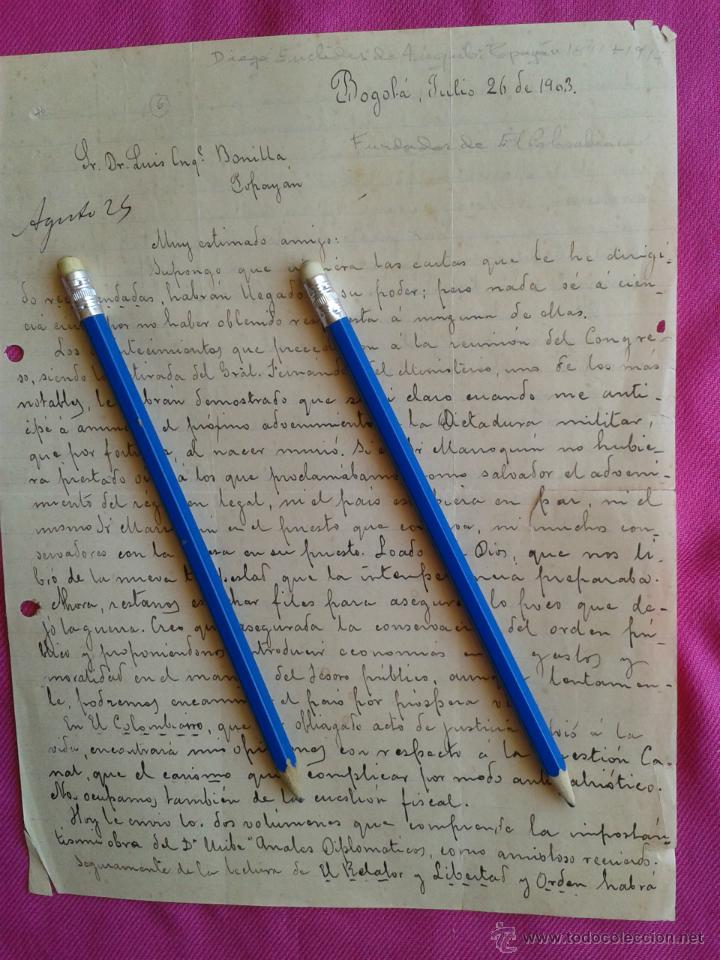 Diego Euclides de Angulo: Popayán
Bogotá, Julio 26 de 1903.
6
Fundador de El Colombiano
Sr. Dr. Luis Enqe. Bonilla,
Popayán
Agosto 25
Muy estimado amigo:
Supongo que las cartas que le he dirigi-
do recomendadas, habrán llegado su poder; pero nada sé á cien-
cia no haber obtenido á ninguna de ellas.
Los que á la reunión del Congre-
so, siendo la del Gral. Fernández del Ministerio, una de los más
notables, le demostrado que claro cuando me anti-
cipé a el próximo advenimiento la Dictadura militar,
que por al nacer murió. Si Marroquín no hubie-
ra prestado á los que proclamábamos como salvador el adveni-
miento del legal, ni el país en paz, ni el
mismo Sr en el puesto que ni muchos con-
servadores con la en su puesto. Loado Dios, que nos li-
bró de la nueva que la preparaba.
Ahora, restanos filas para lo poco que de-
jó la guerra. Creo que asegurada la del orden pú-
blico y proponiéndonos introducir economías gastos y
moralidad en el del Tesoro público, lentamen-
te, podremos el país por próspera
En El Colombiano, que obligado acto de justicia á la
vida, encontrará con respecto a la Cuestión Ca-
nal, que el carismo complicar por modo
Nos ocupamos también de la cuestión fiscal.
Hoy le envío los dos volúmenes que la importan-
tísima obra del Dr Uribe "Anales Diplomáticos, como amistoso recuerdo.
Seguramente de la lectura de El Relator y Libertad y Orden habrá
www.todocoleccion.net